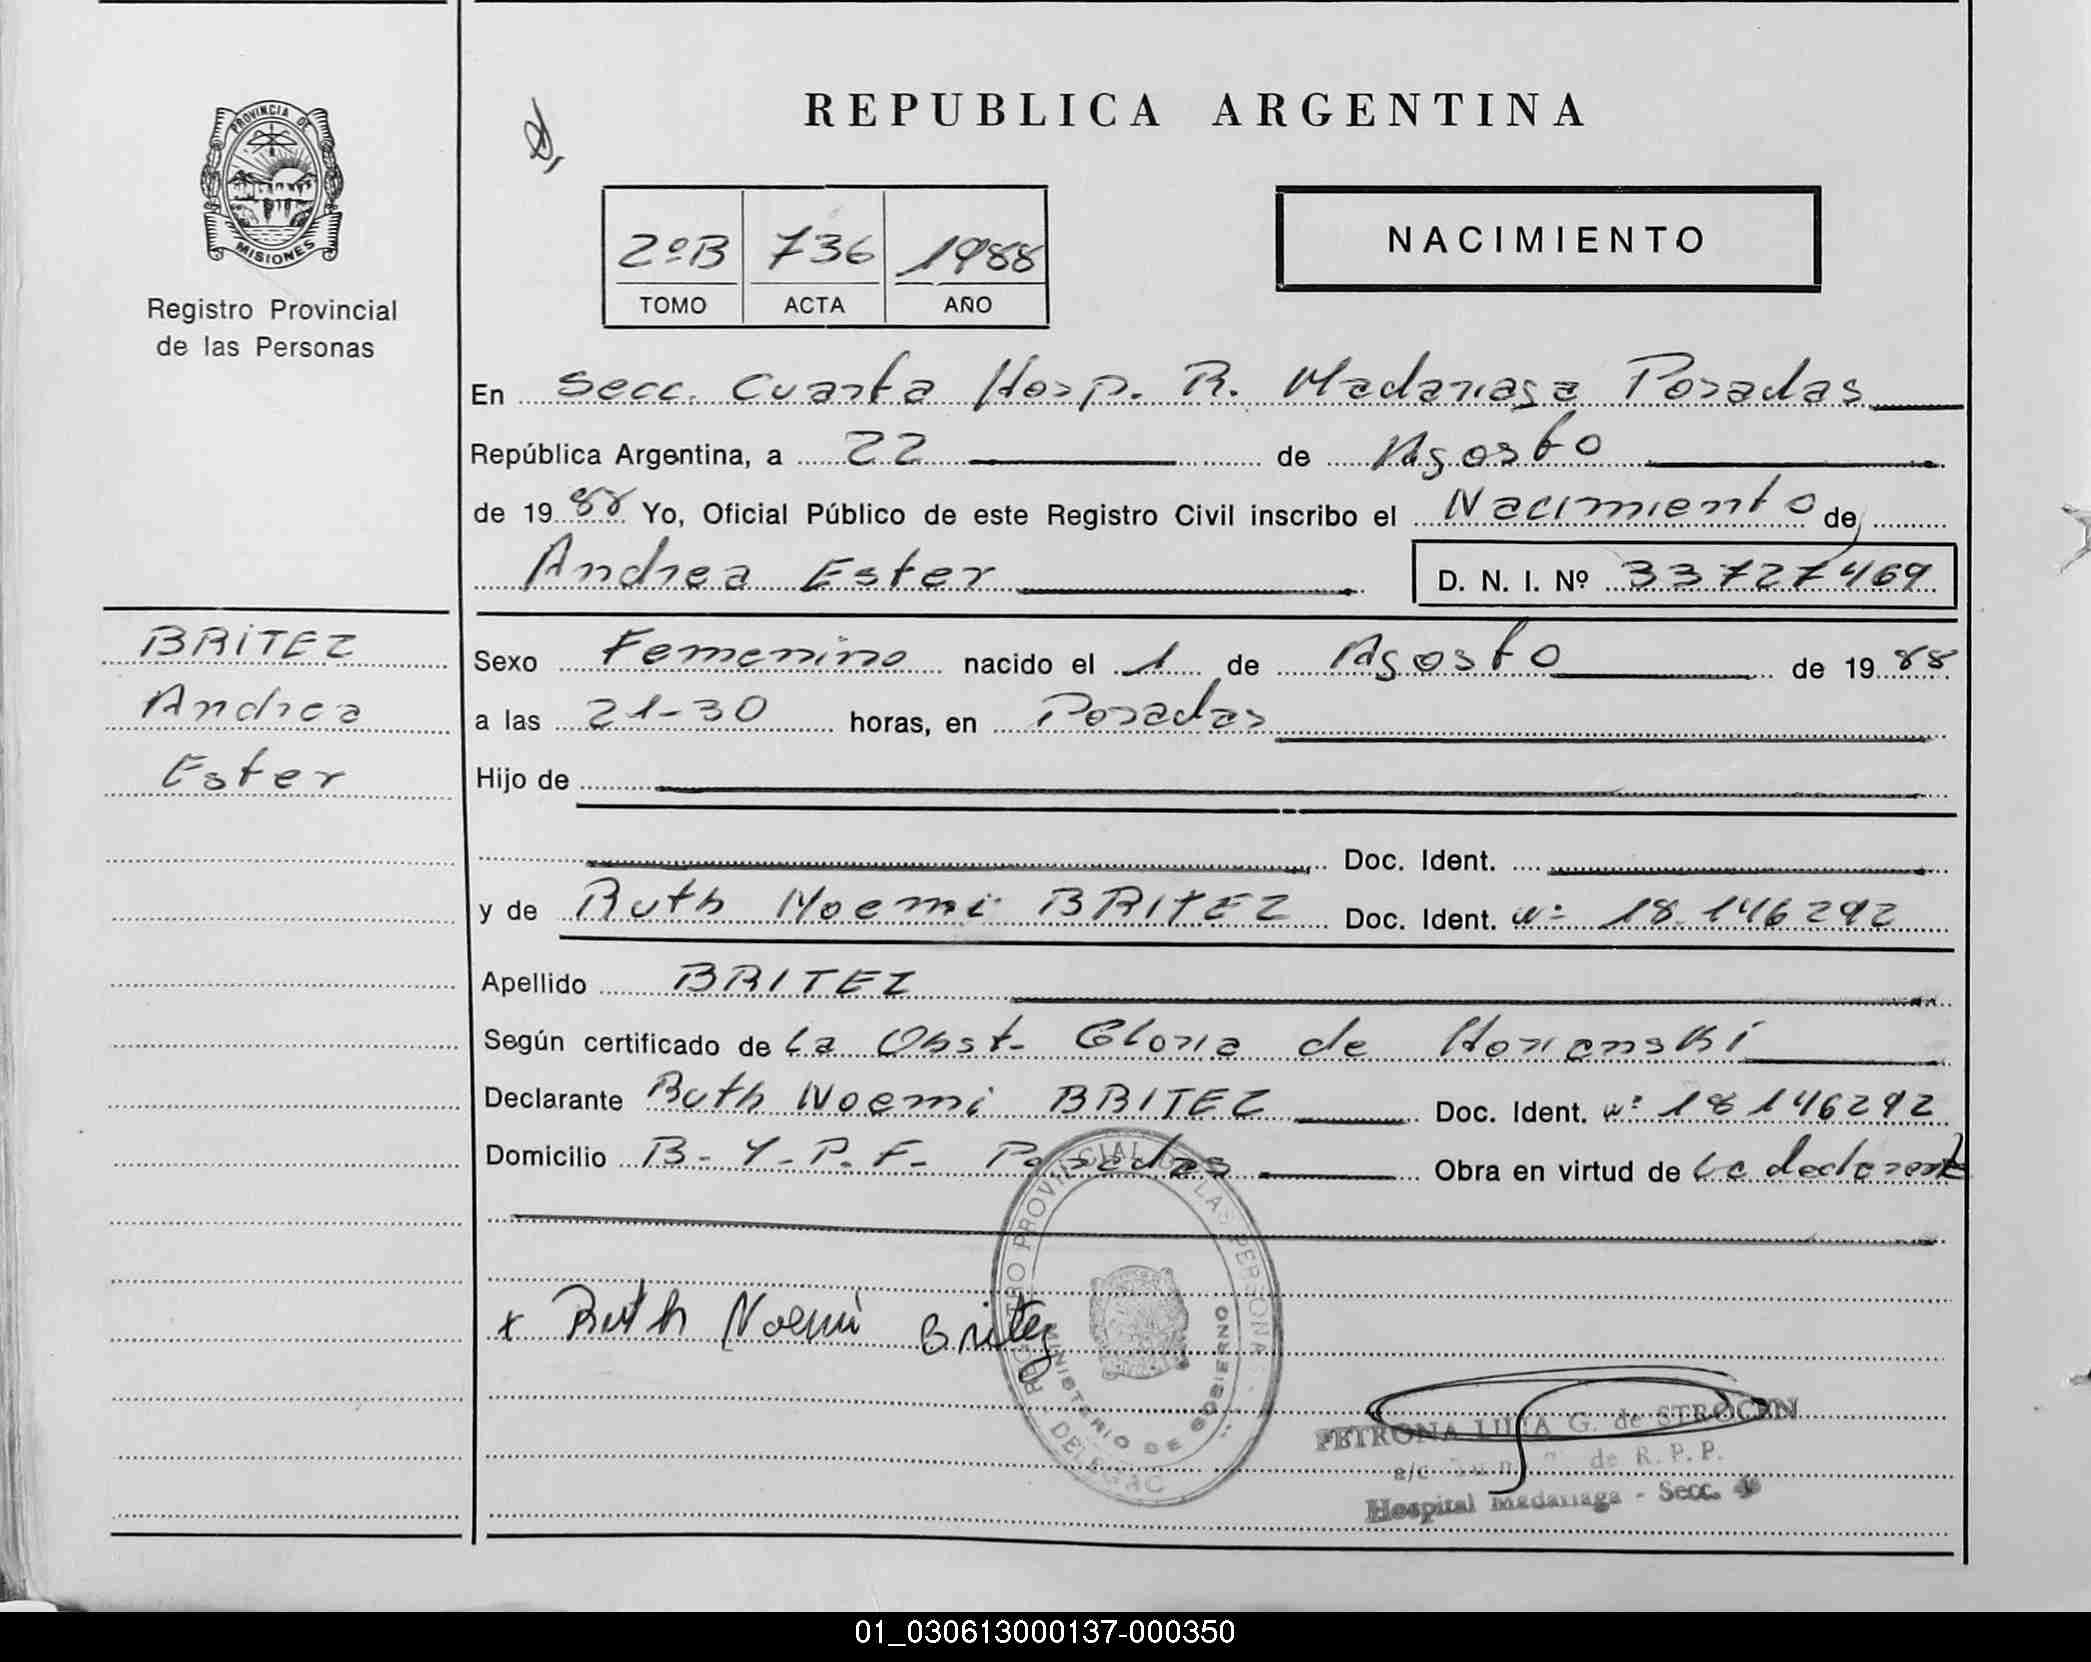 PROVINCIA DE
MISIONES
Registro Provincial
de las Personas
BRITEZ
Andrea
Ester
REPUBLICA ARGENTINA
2ºB 736 1988
TOMO ACTA AÑO
NACIMIENTO
En Secc. Cuarta Hosp. R. Madariaga Posadas
República Argentina, a 22 de Agosto
de 1988 Yo, Oficial Público de este Registro Civil inscribo el Nacimiento de
Andrea Ester D. N. I. Nº 33727469
Sexo Femenino nacido el 1 de Agosto de 1988
a las 21-30 horas, en Posadas
Hijo de
Doc. Ident.
y de Ruth Noemi BRITEZ Doc. Ident. Nº 18.146292
Apellido BRITEZ
Según certificado de La Obst. Gloria de
Declarante Ruth Noemi BRITEZ Doc. Ident. Nº 18146292
Domicilio B- Y-P.F- Posadas Obra en virtud de La declarante
REGISTRO PROVINCIAL DE LAS PERSONAS
MINISTERIO DE GOBIERNO
x Ruth Noemi Britez
PETRONA G. de
a/c de R.P.P.
Hospital Madariaga - Secc. 4ª
01_030613000137-000350